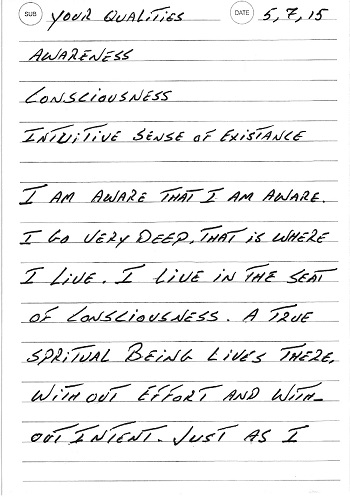 SUB YOUR QUALITIES DATE 5,7,15
AWARENESS
CONSCIOUSNESS
INTUITIVE SENSE OF EXISTANCE
I AM AWARE THAT I AM AWARE.
I GO VERY DEEP, THAT IS WHERE
I LIVE. I LIVE IN THE SEAT
OF CONSCIOUSNESS. A TRUE
SPRITUAL BEING LIVES THERE,
WITHOUT EFFORT AND WITH-
OUT INTENT. JUST AS I